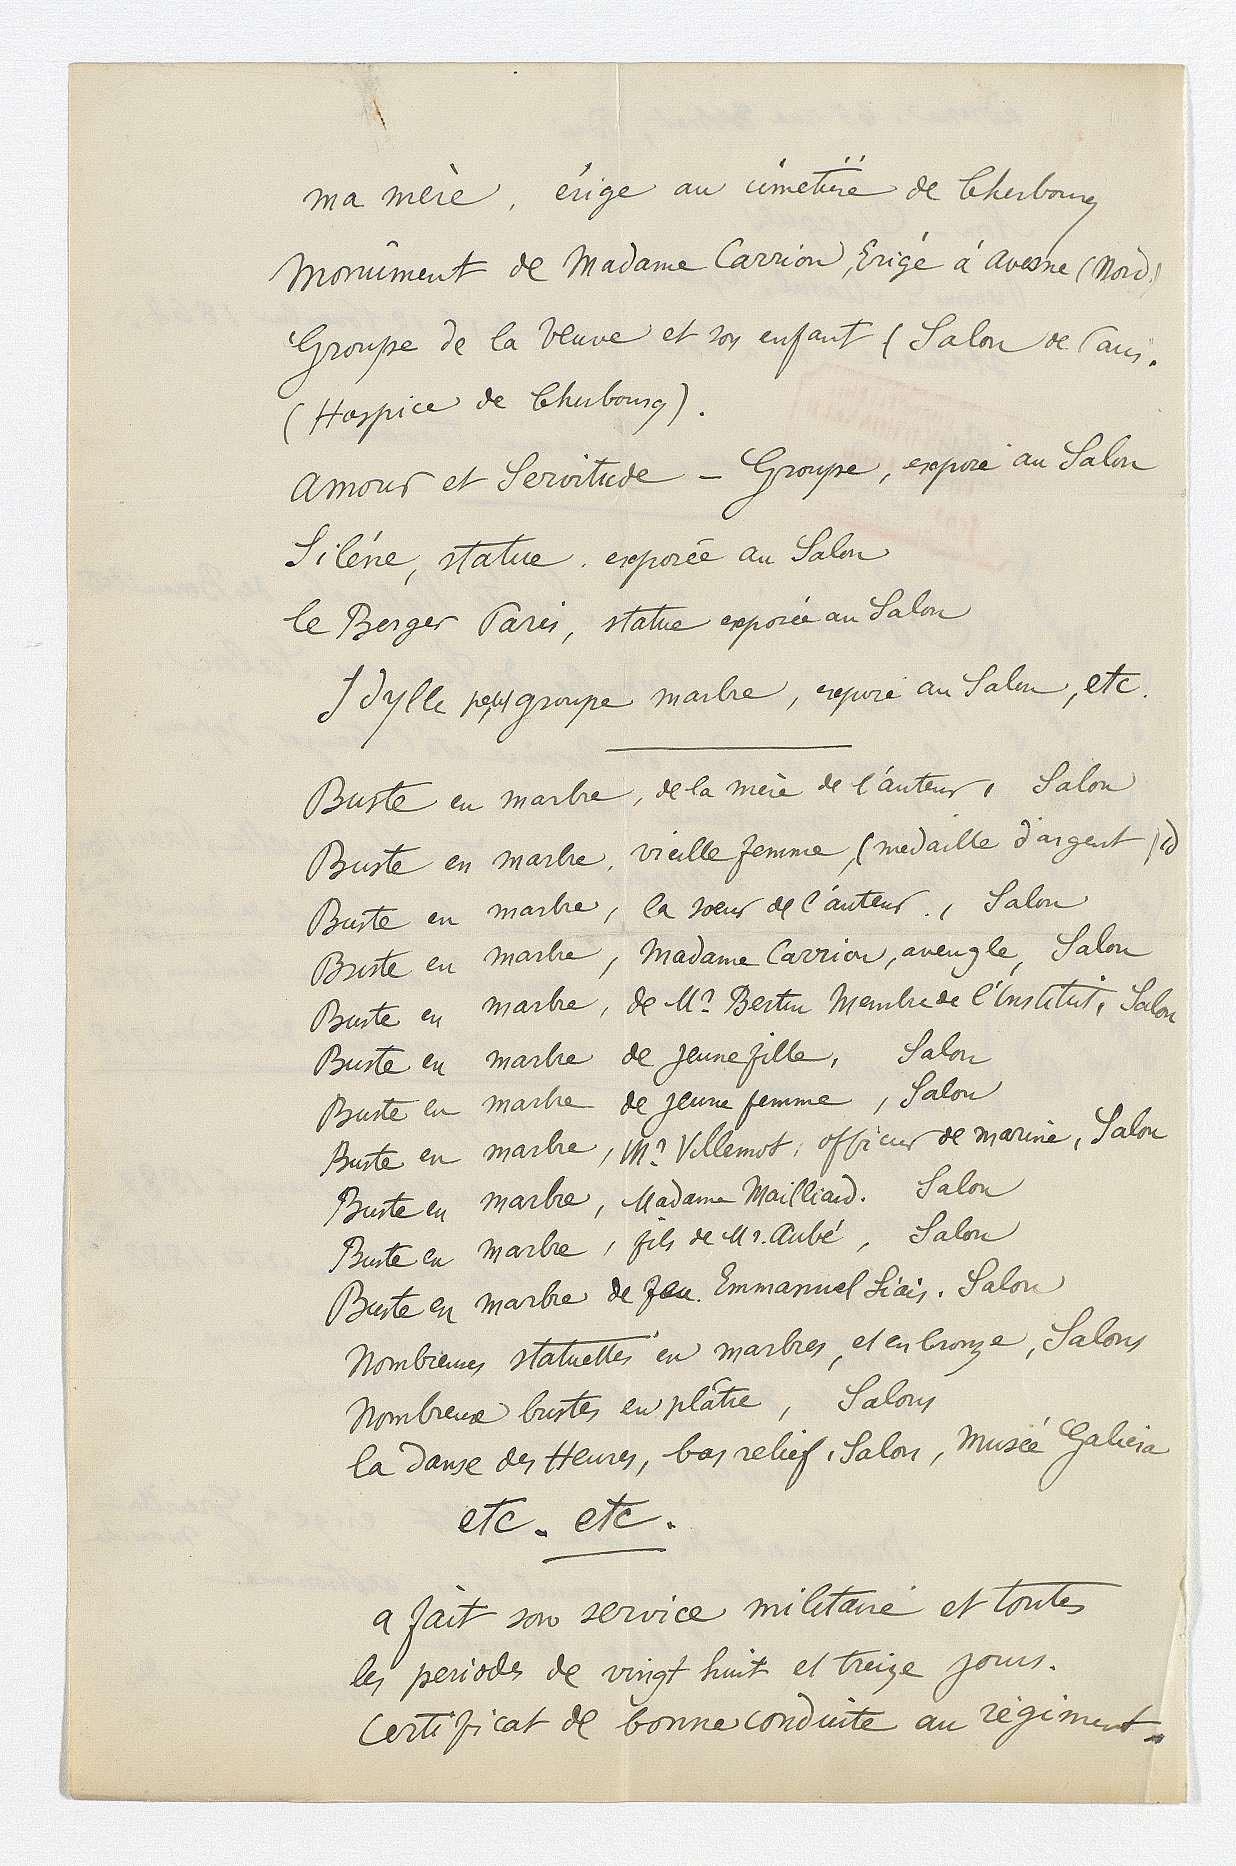 ma mère, érige au cimetière de Cherbourg
Monument de Madame Carrion, Erigé à Avesne (Nord)
Groupe de la Veuve et son enfant (Salon de Paris.
(Hospice de Cherbourg).
Amour et Servitude – Groupe, exposé au Salon
Silène, statue. exposée au Salon
le Berger Paris, statue exposée au Salon
Idylle petit groupe marbre, exposé au Salon, etc.
Buste en marbre, de la mère de l'auteur, Salon
Buste en marbre, vieille femme, (medaille d'argent) id
Buste en marbre, la soeur de l'auteur., Salon
Buste en marbre, Madame Carrion, aveugle, Salon
Buste en marbre, de Mr Bertin Membre de l'Institut, Salon
Buste en marbre de jeune fille, Salon
Buste en marbre de jeune femme, Salon
Buste en marbre, Mr Villemot, officier de marine, Salon
Buste en marbre, Madame Mailliard. Salon
Buste en marbre, fils de Mr. Aubé, Salon
Buste en marbre de feu Emmanuel Liais. Salon
Nombreuses statuettes en marbres, et en bronze, Salons
Nombreux bustes en plâtre, Salons
la danse des Heures, bas relief, Salon, Musée Galiera
etc. etc.
a fait son service militaire et toutes
les periodes de vingt huit et treize jours.
Certificat de bonne conduite au régiment.